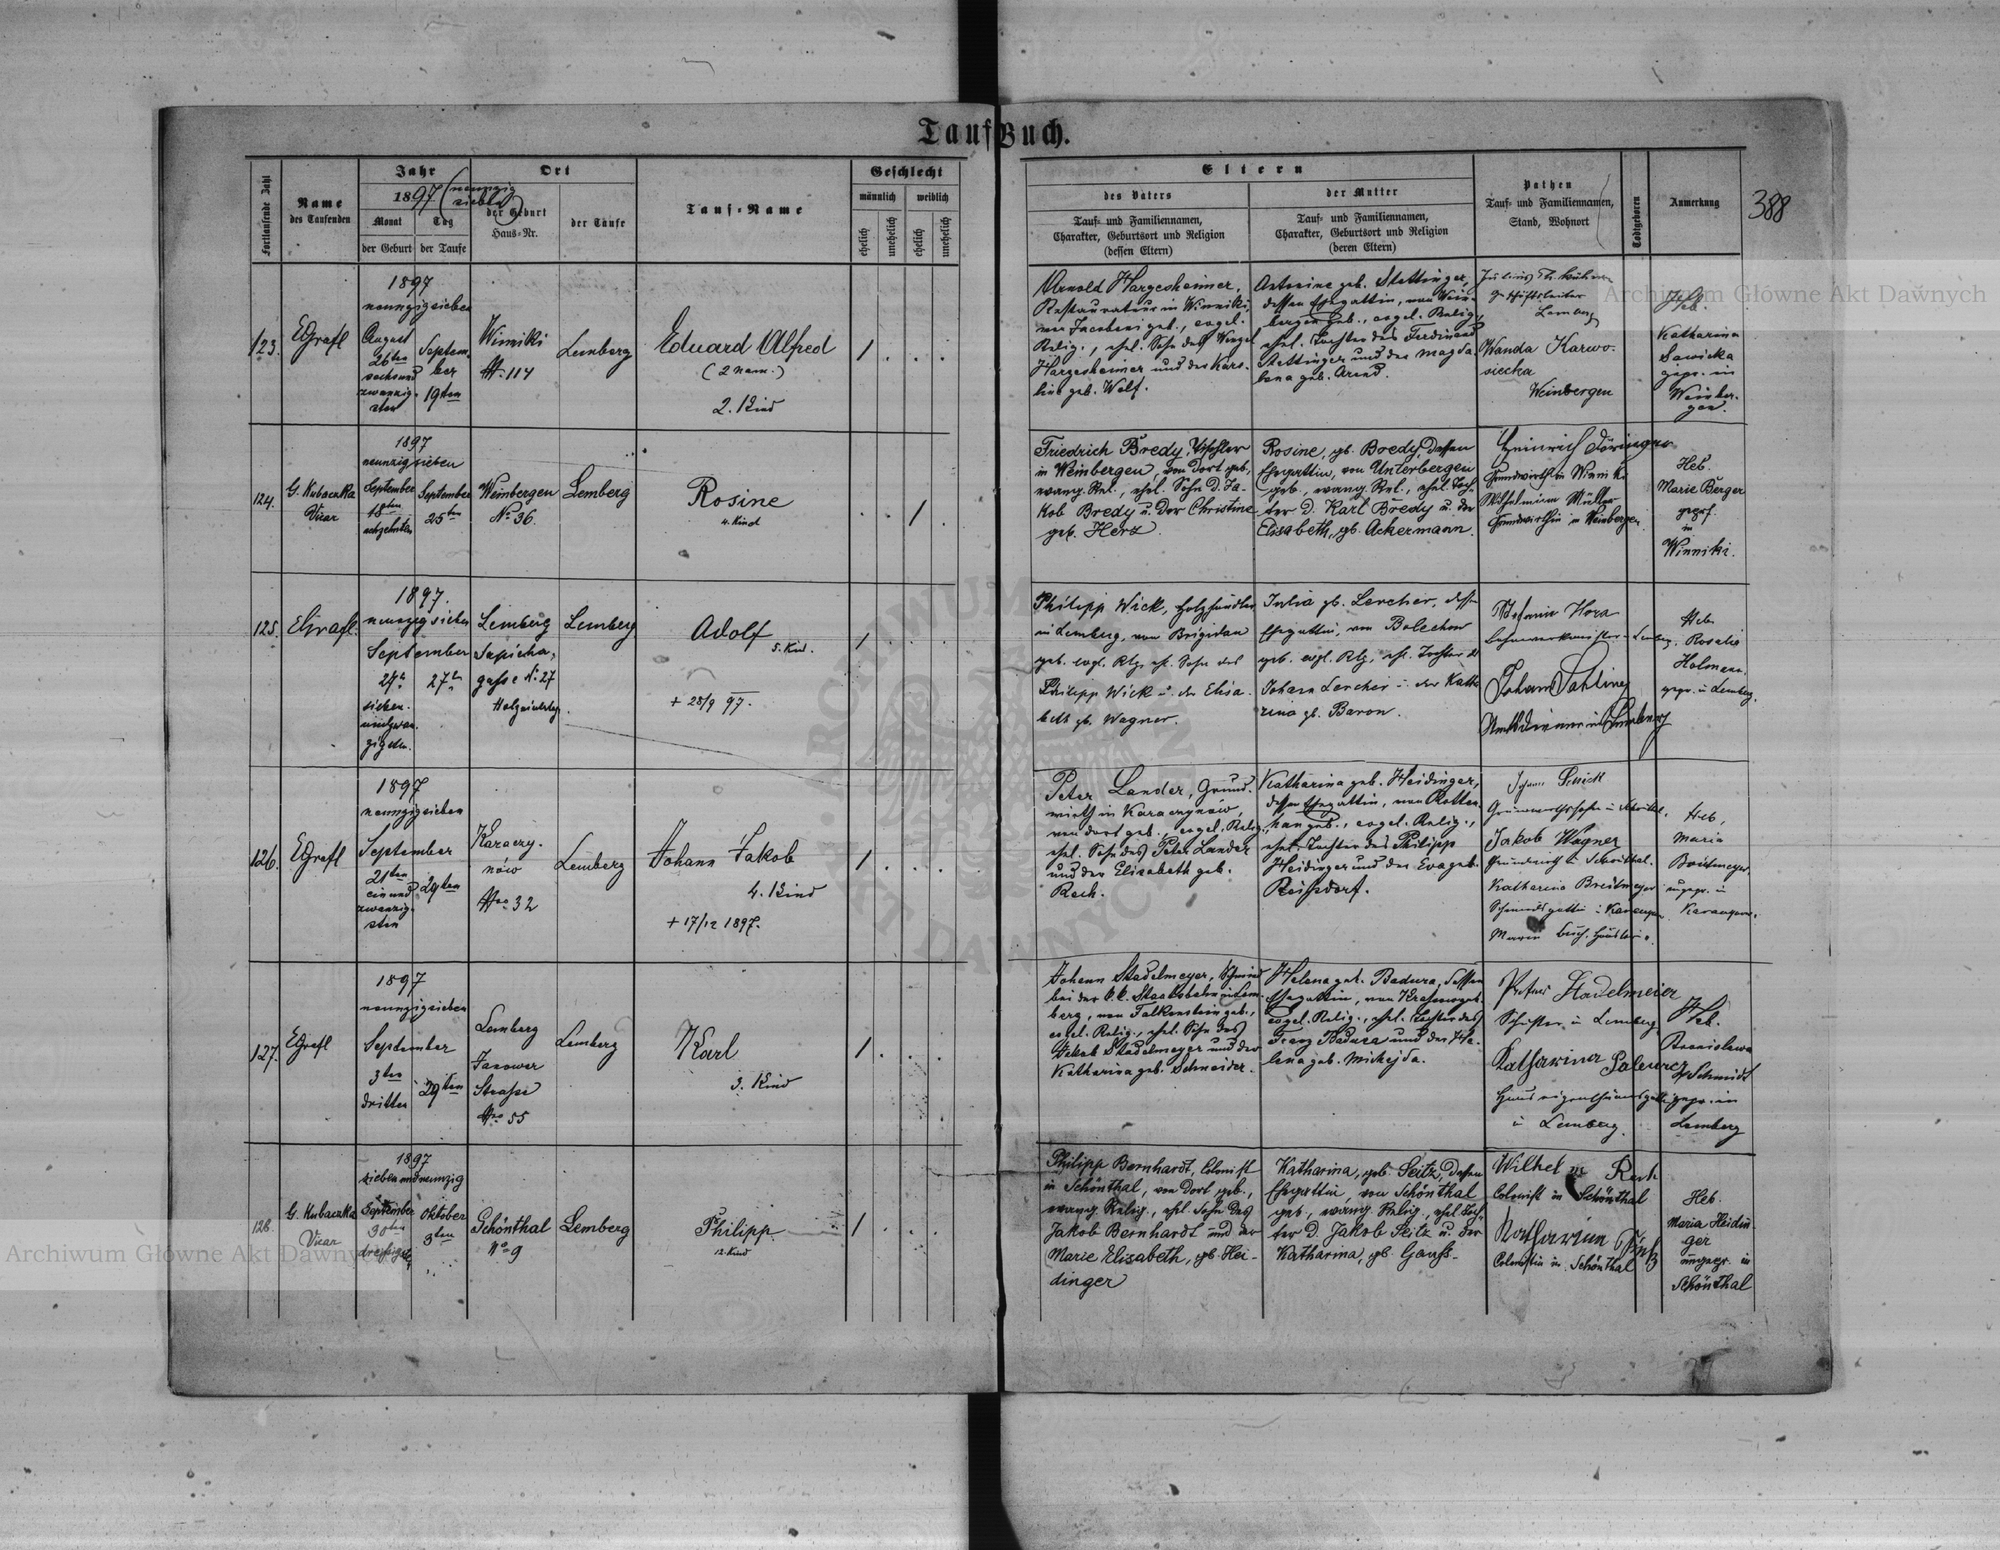 TaufBuch.
388
Fortlaufende Zahl
Name
des Taufenden
Jahr
1897 (neunzig
sieben)
Monat
Tag
der Geburt
der Taufe
Ort
der Geburt
Haus-Nr.
der Taufe
Tauf-Name
Geschlecht
männlich
weiblich
ehelich
unehelich
ehelich
unehelich
Eltern
des Vaters
Tauf- und Familiennamen,
Charakter, Geburtsort und Religion
(dessen Eltern)
der Mutter
Tauf- und Familiennamen,
Charakter, Geburtsort und Religion
(deren Eltern)
Pathen
Tauf- und Familiennamen,
Stand, Wohnort
Todtgeboren
Anmerkung
123.
1897
neunzigsieben
August
26ten
sechsund
zwanzig-
sten
Septem-
ber
19ten
Winniki
No. 114
Lemberg
Eduard Alfred
(2 Nam.)
2. Kind
Arnold Hargesheimer,
Restaurateur in Winniki,
geb., evgl.
Relig., ehel. Sohn des
Hargesheimer und der Karo-
line geb. Wolf.
geb. Stettinger,
dessen Ehegattin, von Wein-
bergen geb., evgel. Relig.,
ehel. Tochter des Ferdinand
Stettinger und der Magda-
lena geb. Arend.
Lemberg
Wanda Karwo-
siecka
Weinbergen
Heb.
Katharina
Sawicka
gepr. in
Weinber-
gen.
124.
G. Kubaczka
Vicar
1897
neunzigsieben
September
18ten
achzehnten
September
25ten
Weinbergen
No 36.
Lemberg
Rosine
4. Kind
Friedrich Bredy,
in Weinbergen, von dort geb.,
evang. Rel., ehel. Sohn d. Ja-
kob Bredy u. der Christine
geb. Herz.
Rosine, gb. Bredy, dessen
Ehegattin, von Unterbergen
geb., evang. Rel., ehel. Toch-
ter d. Karl Bredy u. der
Elisabeth, gb. Ackermann.
Heinrich
Grundwirth in Winniki
Wilhelmine Müller
Grundwirthin in Weinbergen
Heb.
Marie Berger
geprf.
in
Winniki.
125.
1897.
neunzigsieben
September
27t
sieben-
undzwan-
zigsten.
27ten
Lemberg
Sapieha-
gasse No 27
Lemberg
Adolf
5. Kind.
+ 28/9 97.
Philipp Wick, Holzhändler
in Lemberg, von Brigidau
geb. evgl. Rlg. ehl. Sohn des
Philipp Wick u. der Elisa-
beth gb. Wagner.
Julia gb. Lercher, dess.
Ehegattin, von Bolechow
geb. evgl. Rlg, ehl. Tochter d.
Johann Lercher u. der Katha-
rina gb. Baron.
Hora
Johann
Heb.
Rosalie
gepr. in Lemberg.
126.
1897
neunzigsieben
September
21ten
einund
zwanzig-
sten
29ten
Karaczy-
nów
No 32
Lemberg
Johann Jakob
4. Kind
+ 17/12 1897.
Peter Lander, Grund-
wirth in Karaczynów,
von dort geb., evgel. Relig.,
ehel. Sohn des Peter Lander
und der Elisabeth geb.
Rech.
Katharina geb. Heidinger,
dessen Ehegattin, von Rotten-
han geb., evgel. Relig.,
ehel. Tochter des Philipp
Heidinger und der Eva geb.
Reichsdorf.
Jakob Wagner
Katharina Breitmeyer
Heb.
Maria
Breitmeyer
ungepr. in
127.
1897
neunzigsieben
September
3ten
dritten
29ten
Lemberg
Janower
Strasse
No 55
Lemberg
Karl
3. Kind
Johann Stadelmeyer, Schmied
bei der k.k. Staatsbahn in Lem-
berg, von Falkenstein geb.,
evgel. Relig., ehel. Sohn des
Jakob Stadelmeyer und der
Katharina geb. Schneider.
Helena geb. Badura, dessen
Ehegattin, von
evgel. Relig., ehel. Tochter des
Franz Badura und der He-
lena geb. Michejda.
Stadelmeier
Schuster in Lemberg
Katharina
in Lemberg.
Heb.
Bronislawa
Schmidt
gepr. in
Lemberg
128.
G. Kubaczka
Vicar
1897
siebenundneunzig
September
30ten
dreißigsten
Oktober
3ten
Schönthal
No 9
Lemberg
Philipp
12. Kind
Philipp Bernhardt, Colonist
in Schönthal, von dort geb.,
evang. Relig., ehel. Sohn des
Jakob Bernhardt und der
Marie Elisabeth, gb. Hei-
dinger
Katharina, geb. Seitz, dessen
Ehegattin, von Schönthal
geb., evang. Relig., ehel. Toch-
ter d. Jakob Seitz u. der
Katharina, gb. Gauss-
Wilhelm Rech
Colonist in Schönthal
Katharina
Colonistin in Schönthal
Heb.
Maria Heidin-
ger
ungepr. in
Schönthal
Archiwum Główne Akt Dawnych
Archiwum Główne Akt Dawnych